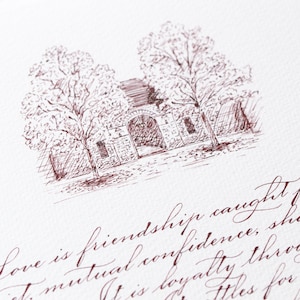 Love is friendship caught
mutual confidence, sh
It is loyalty throu
ttles for